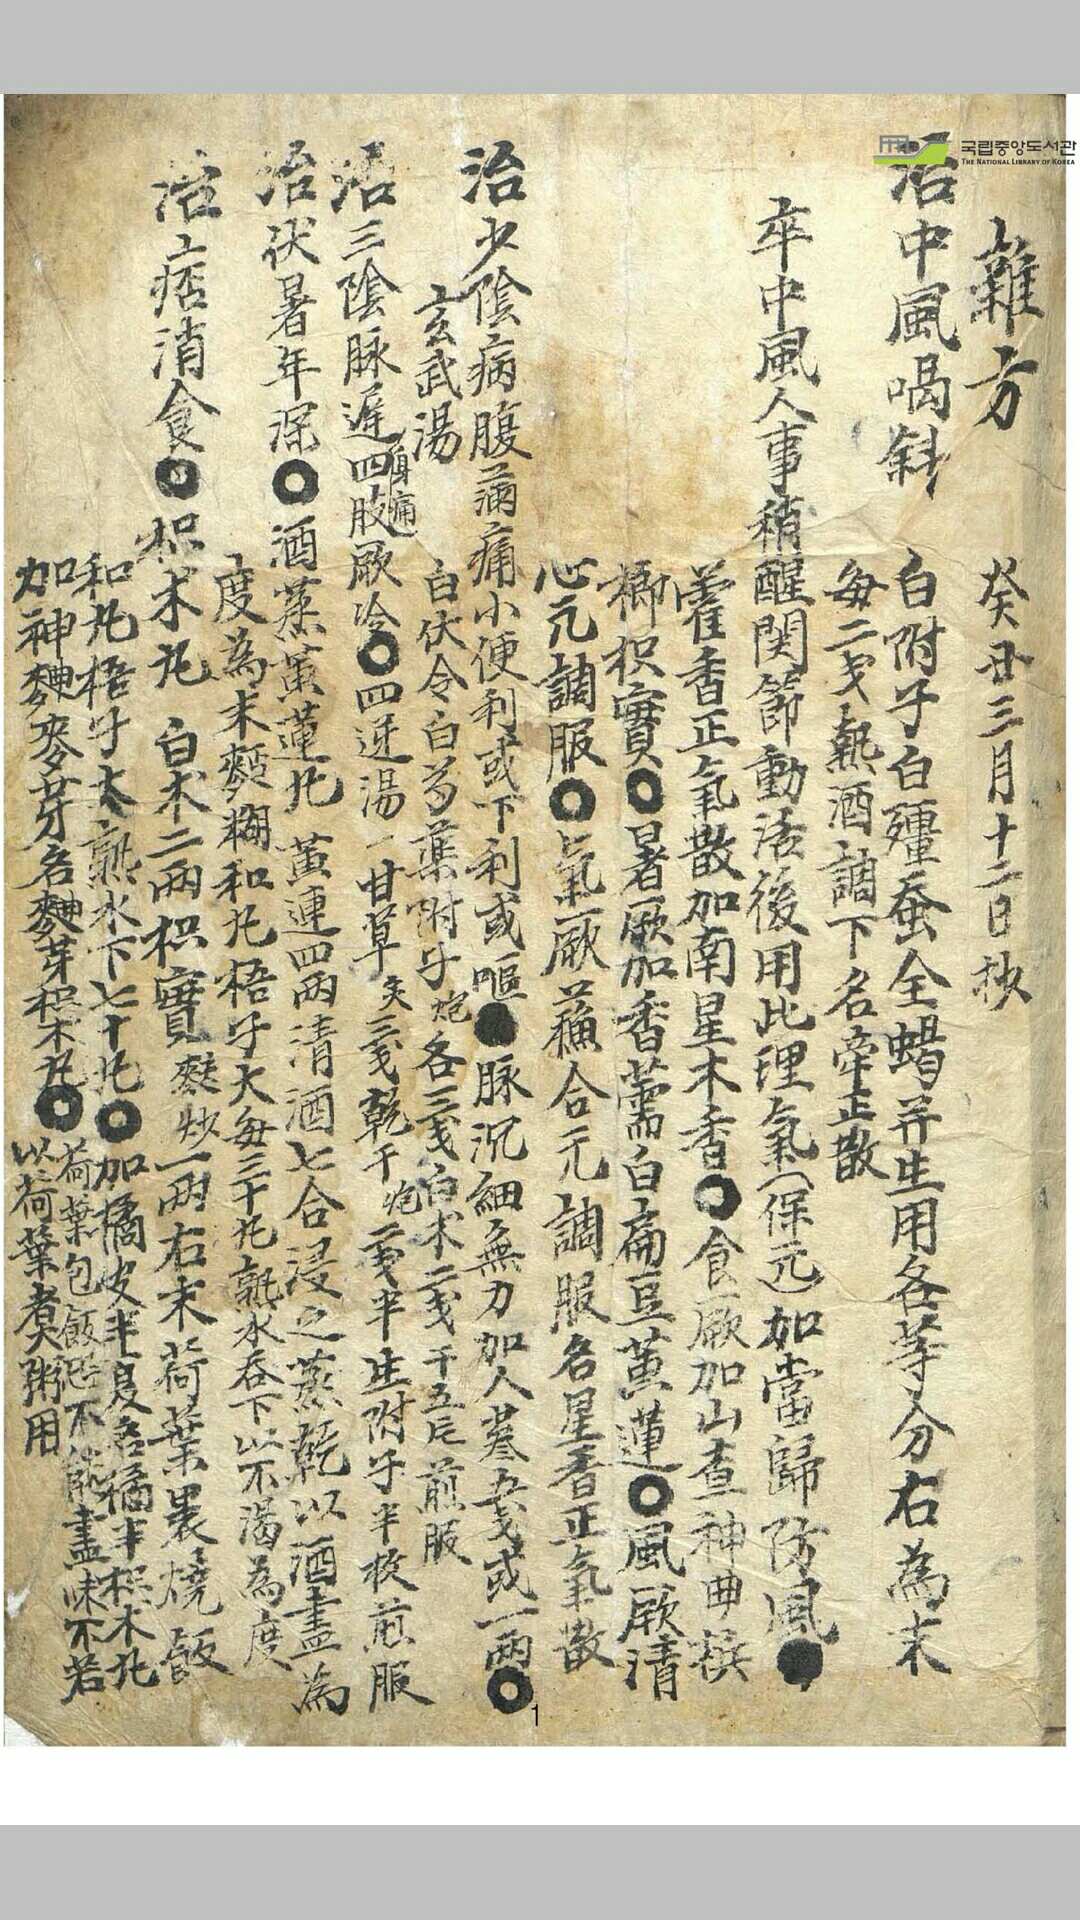 국립중앙도서관
THE NATIONAL LIBRARY OF KOREA
雜方 癸丑三月十二日抄
治中風喎斜
白附子白殭蚕全蝎并生用各等分右為末
每二戔熱酒調下名牽正散
卒中風人事稍醒関節動活後用此理氣(保元)加當歸防風
藿香正氣散加南星木香 食厥加山査神曲檳
榔枳實 暑厥加香薷白扁豆黃蓮 風厥清
心元調服 氣厥蘇合元調服名星香正氣散
治少陰病腹滿痛小便利或下利或嘔 脉沉細無力加人蔘五戔或一兩
玄武湯 白伏令白芍藥附子炮各三戔白朮二戔干五片煎服
治三陰脉遲身痛四肢厥冷 四逆湯 甘草灸三戔乾干炮二戔半生附子半枚煎服
治伏暑年深 酒蒸黃蓮丸 黃連四兩清酒七合浸之蒸乾以酒盡為
度為末麪糊和丸梧子大每三十丸熟水吞下以不渴為度
治痞消食 枳朮丸 白朮二兩枳實麩炒一兩右末荷葉裹燒飯
和丸梧子大熟水下七十丸 加橘皮半夏名橘半枳朮丸
加神麯麥芽名麯芽枳朮丸 荷葉包飯 不能盡味不若
以荷葉煑粥用
1